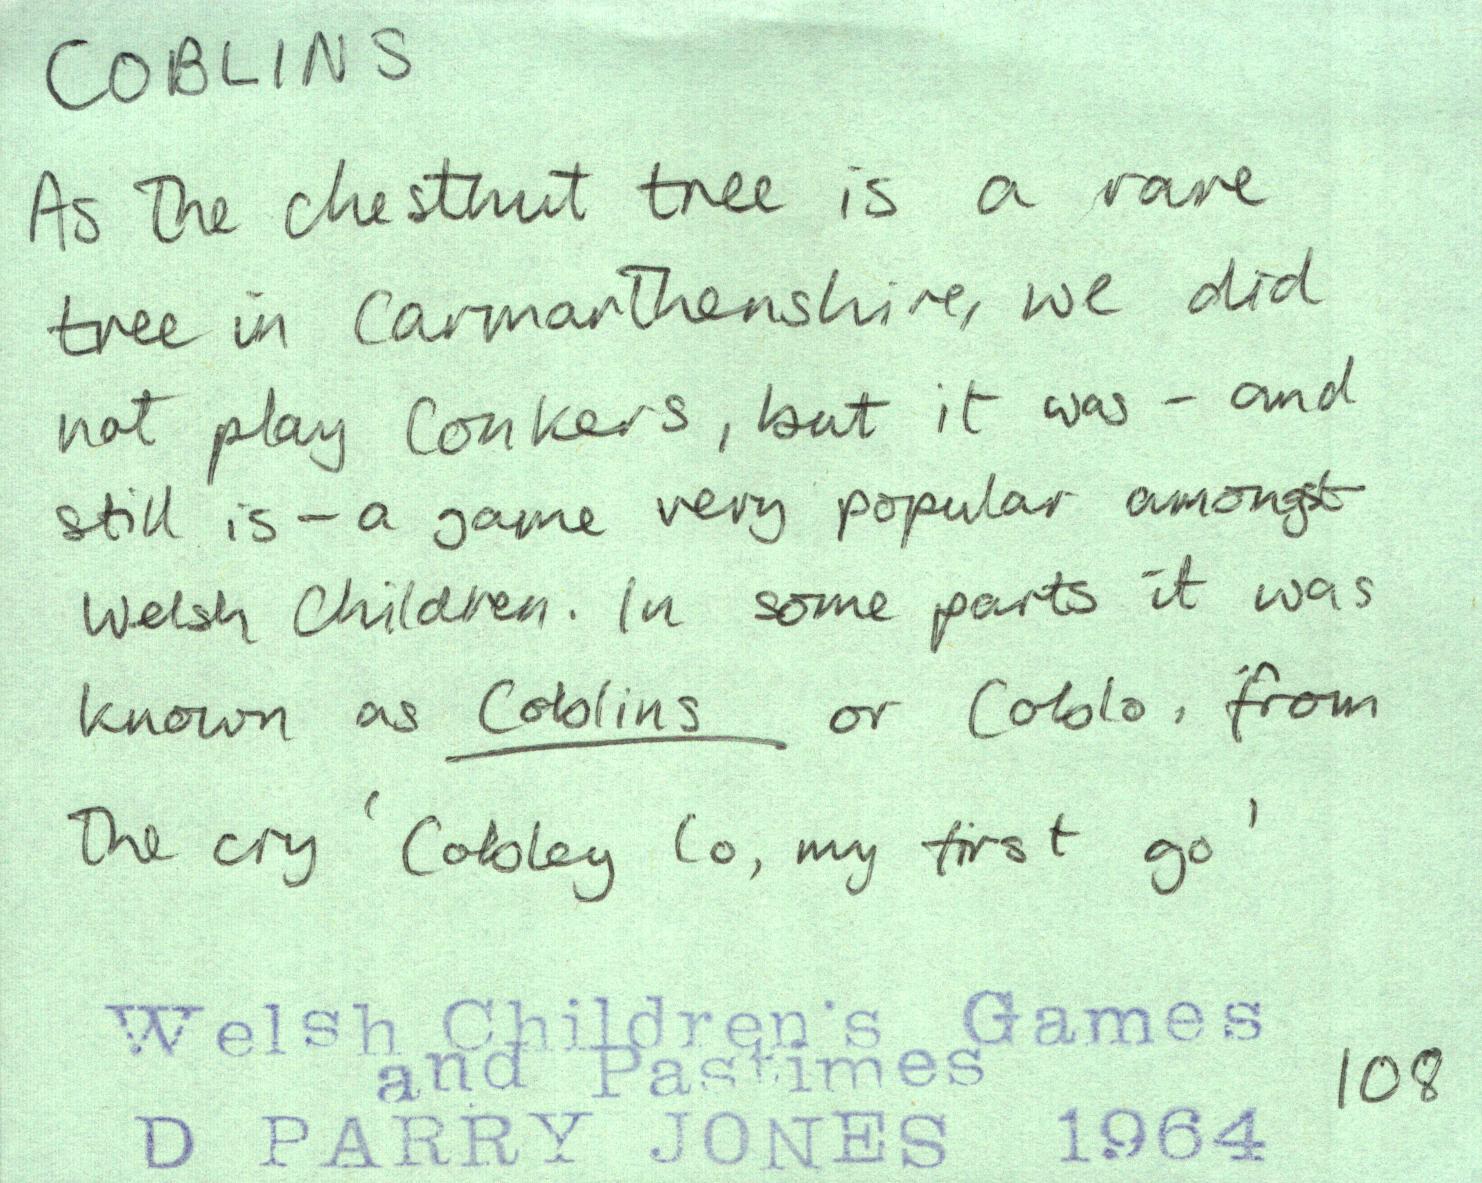 COBLINS
As the chestnut tree is a rare
tree in Carmarthenshire, we did
not play Conkers, but it was - and
still is - a game very popular amongst
Welsh Children. In some parts it was
known as Coblins or Coblo, from
the cry 'Cobley Co, my first go'
Welsh Children's Games
and Pastimes
108
D PARRY JONES 1964